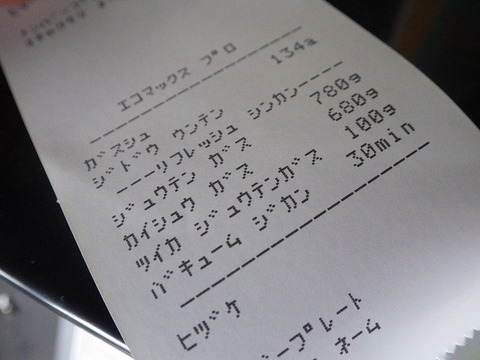 エコマックス プロ
ガスシュ 134a
ジドウ ウンテン
---リフレッシュ シンカン----
ジュウテン ガス 780g
カイシュウ ガス 680g
ツイカ ジュウテンガス 100g
バキューム ジカン 30min
ヒヅケ
ープレート
ネーム